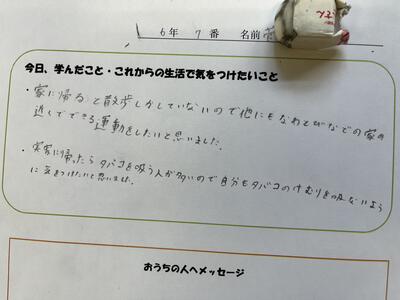 6年 7番 名前
今日、学んだこと・これからの生活で気をつけたいこと
・家に帰ると散歩しかしていないので他にもなわとびなどの家の
近くでできる運動をしたいと思いました。
・実家に帰ったらタバコを吸う人が多いので自分もタバコのけむりを吸ないよう
に気をつけたいと思いました。
おうちの人へメッセージ